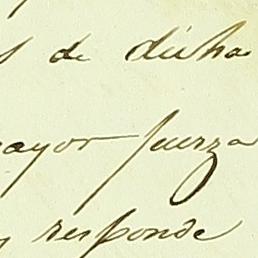 s de dicha
mayor fuerza
y responde